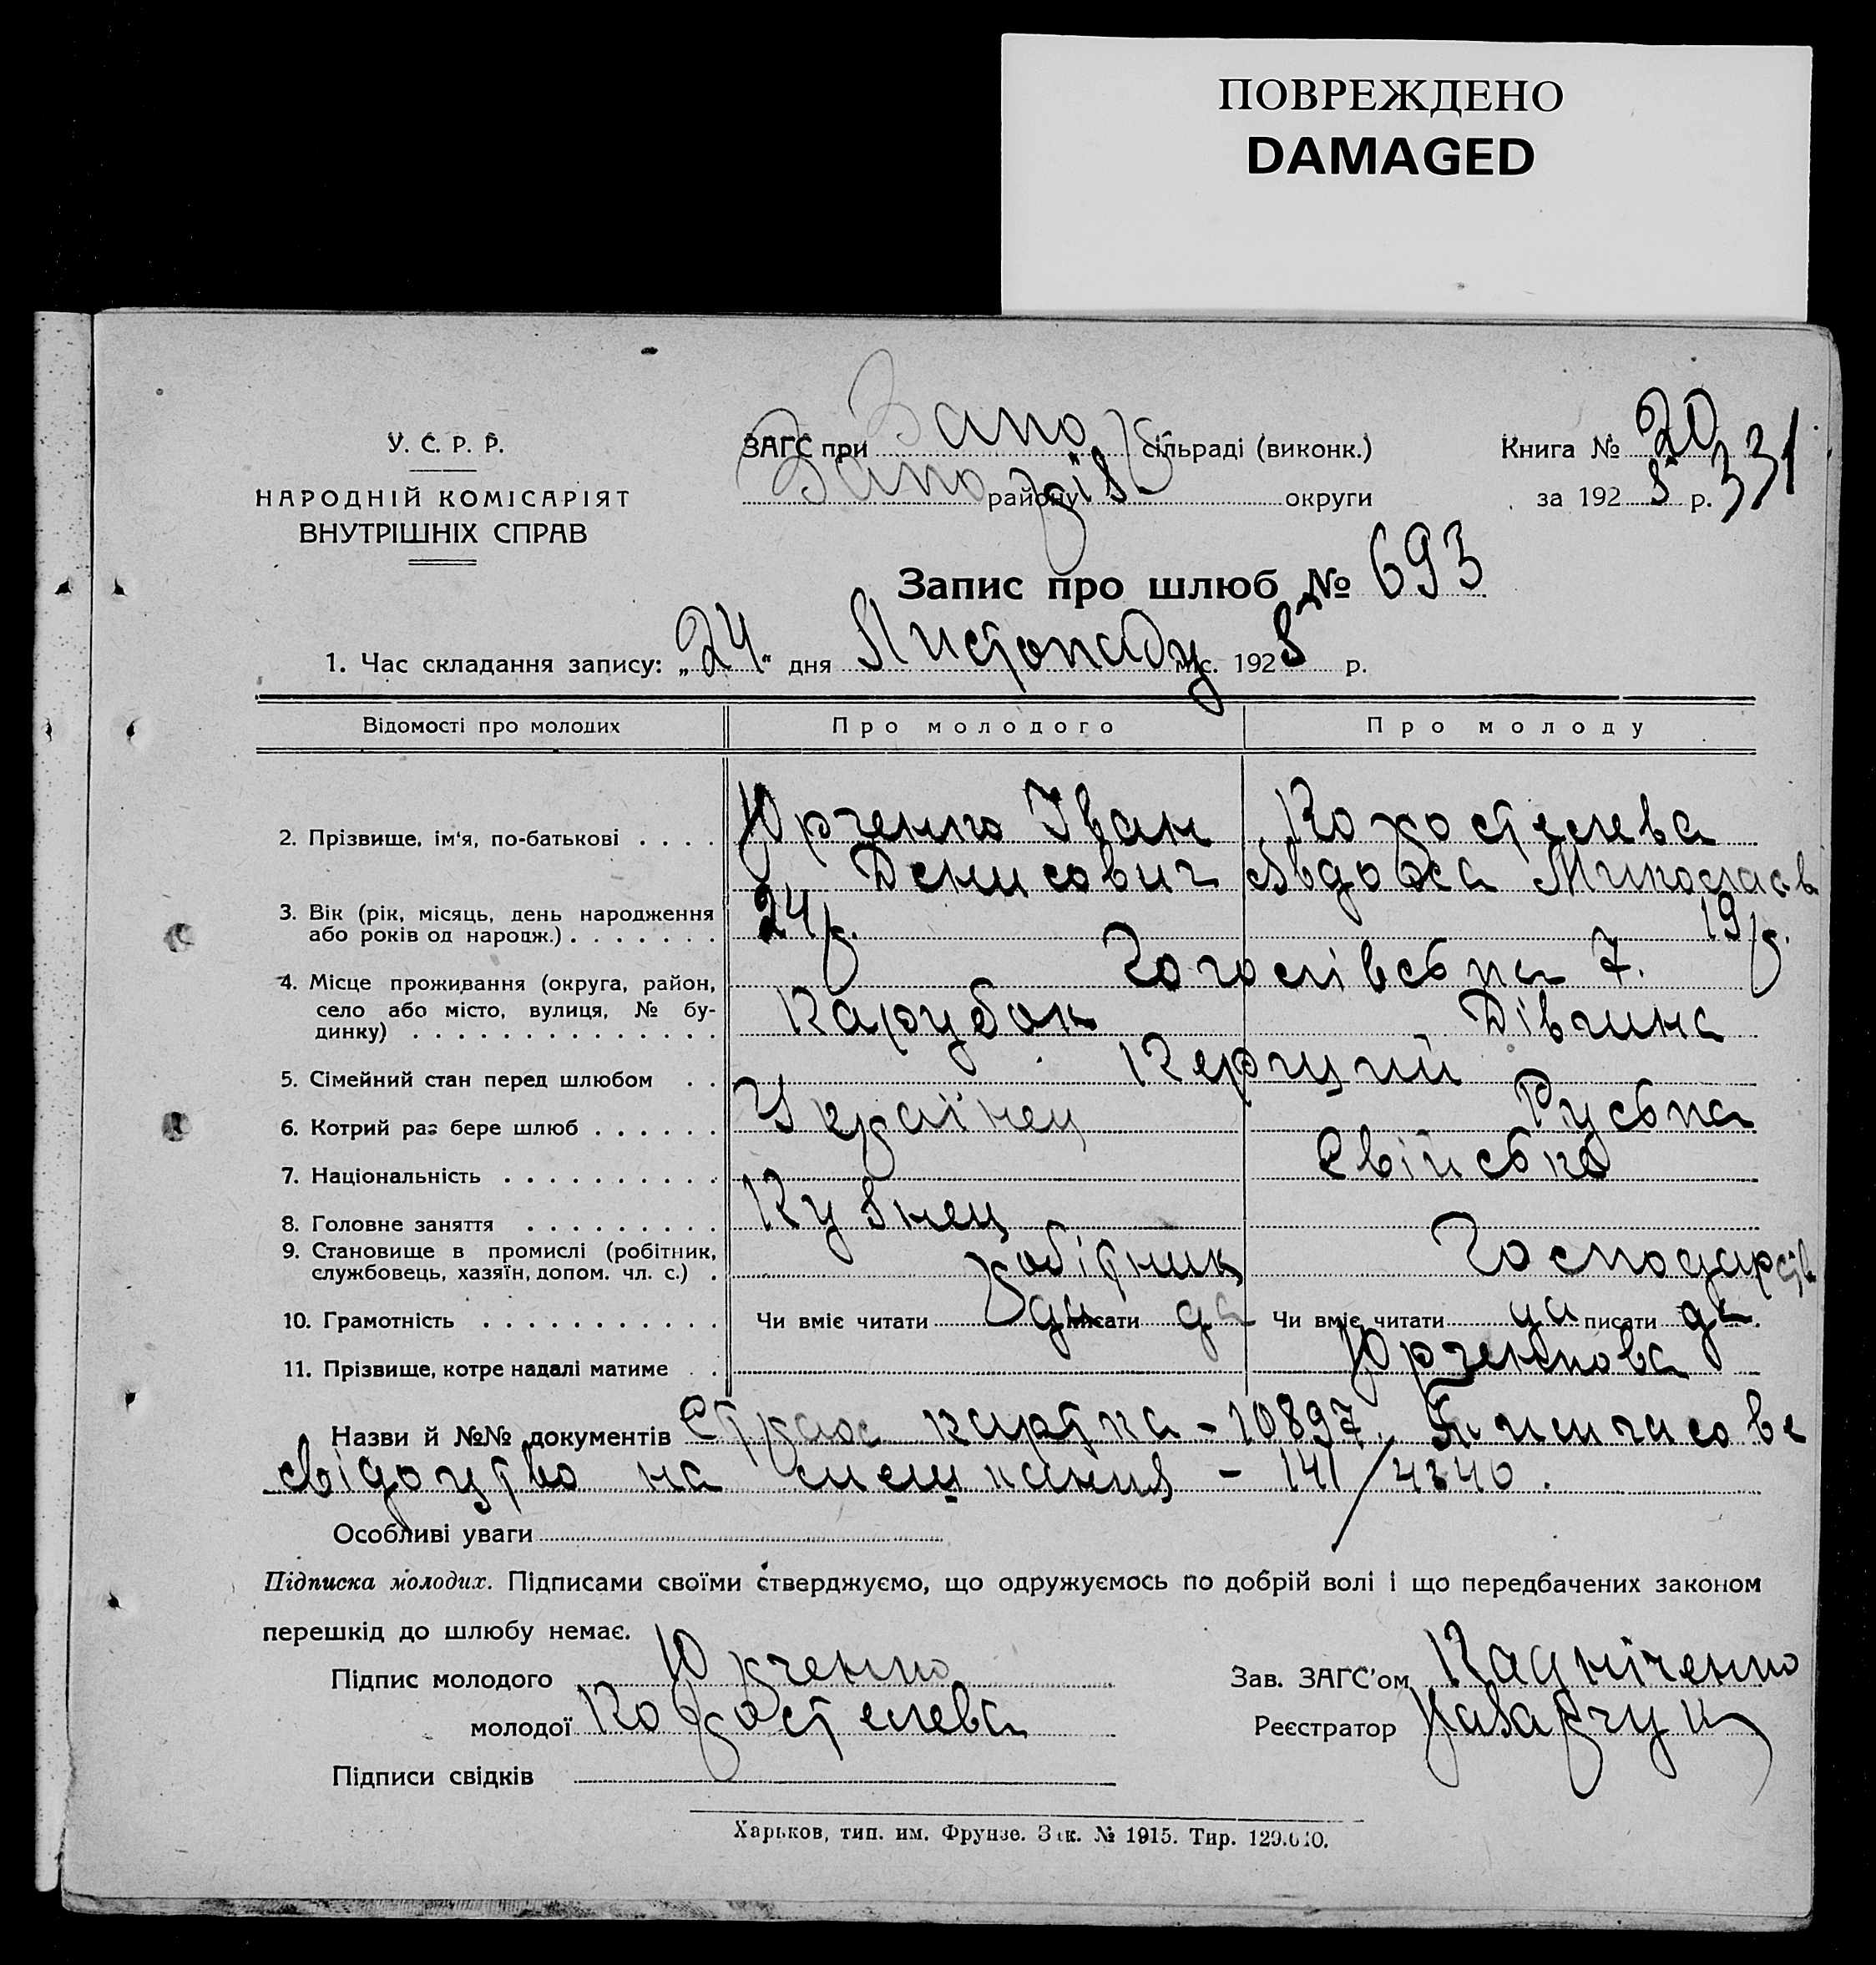 ПОВРЕЖДЕНО
DAMAGED
У. С. Р. Р.
НАРОДНІЙ КОМІСАРІЯТ
ВНУТРІШНІХ СПРАВ
ЗАГС при Запо сільраді (виконк.)
Запо району округи
Книга № 20
за 1925 р. 331
Запис про шлюб № 693
1. Час складання запису: „24“ дня Листопаду міс. 1925 р.
Відомості про молодих Про молодого Про молоду
2. Прізвище, ім'я, по-батькові . . . . Юрченко Іван Коростелева
Денисович Явдоха Миколаєв
3. Вік (рік, місяць, день народження
або років од народж.) . . . . . . . 24 р. 19 р.
4. Місце проживання (округа, район, Гоголівська 7.
село або місто, вулиця, № бу-
динку) . . . . . . . . . . . . . . Парубок Дівчина
5. Сімейний стан перед шлюбом . . Перший
6. Котрий раз бере шлюб . . . . . . Українец Руська
7. Національність . . . . . . . . . .
8. Головне заняття . . . . . . . . . Кузнец
9. Становище в промислі (робітник,
службовець, хазяїн, допом. чл. с.) . робітник Господарств
10. Грамотність . . . . . . . . . . . Чи вміє читати да писати да Чи вміє читати да писати да.
11. Прізвище, котре надалі матиме . . Юрченкова
Назви й №№ документів Страх картка - 10897. Тимчасове
свідоцтво на мешкання - 141/4340.
Особливі уваги
Підписка молодих. Підписами своїми стверджуємо, що одружуємось по добрій волі і що передбачених законом
перешкід до шлюбу немає.
Підпис молодого Юрченко
Зав. ЗАГС'ом
молодої Коростелева
Реєстратор Назарчук
Підписи свідків
Харьков, тип. им. Фрунзе. Зак. № 1915. Тир.